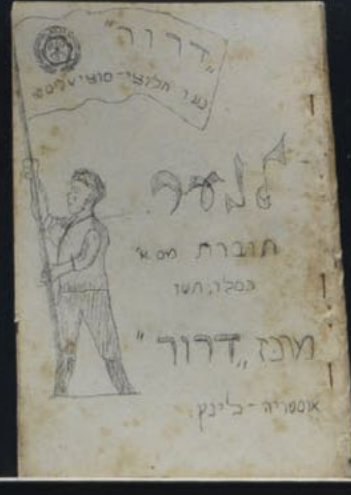 "דרור"
נוער חלוצי-סוציאליסטי
לנוער
חוברת מס א'
כסלו, תשו
מרכז "דרור"
אוסטריה - לינץ